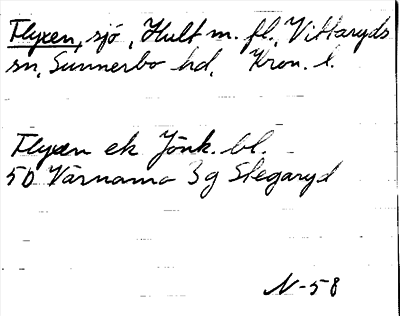 Flyxen, sjö, Hult m. fl., Vittaryds
sn, Sunnerbo hd, Kron. l.
Flyxen ek Jönk. bl.
5D Värnamo 3g Stegaryd
N-58